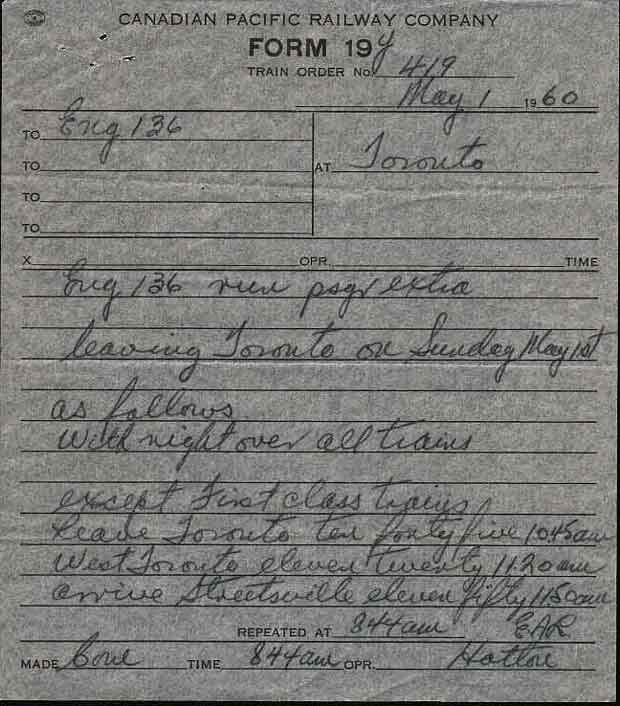 CANADIAN PACIFIC RAILWAY COMPANY
FORM 19 y
TRAIN ORDER No. 419
May 1 1960
TO Eng 136
TO
TO
TO
AT Toronto
X OPR. TIME
Eng 136 run psgr extra
leaving Toronto on Sunday May 1st
as follows
with right over all trains
except First class trains
Leave Toronto ten forty five 10.45am
West Toronto eleven twenty 11.20am
arrive Streetsville eleven fifty 11.50am
REPEATED AT 844am EAR
MADE TIME 844am OPR. Hatton